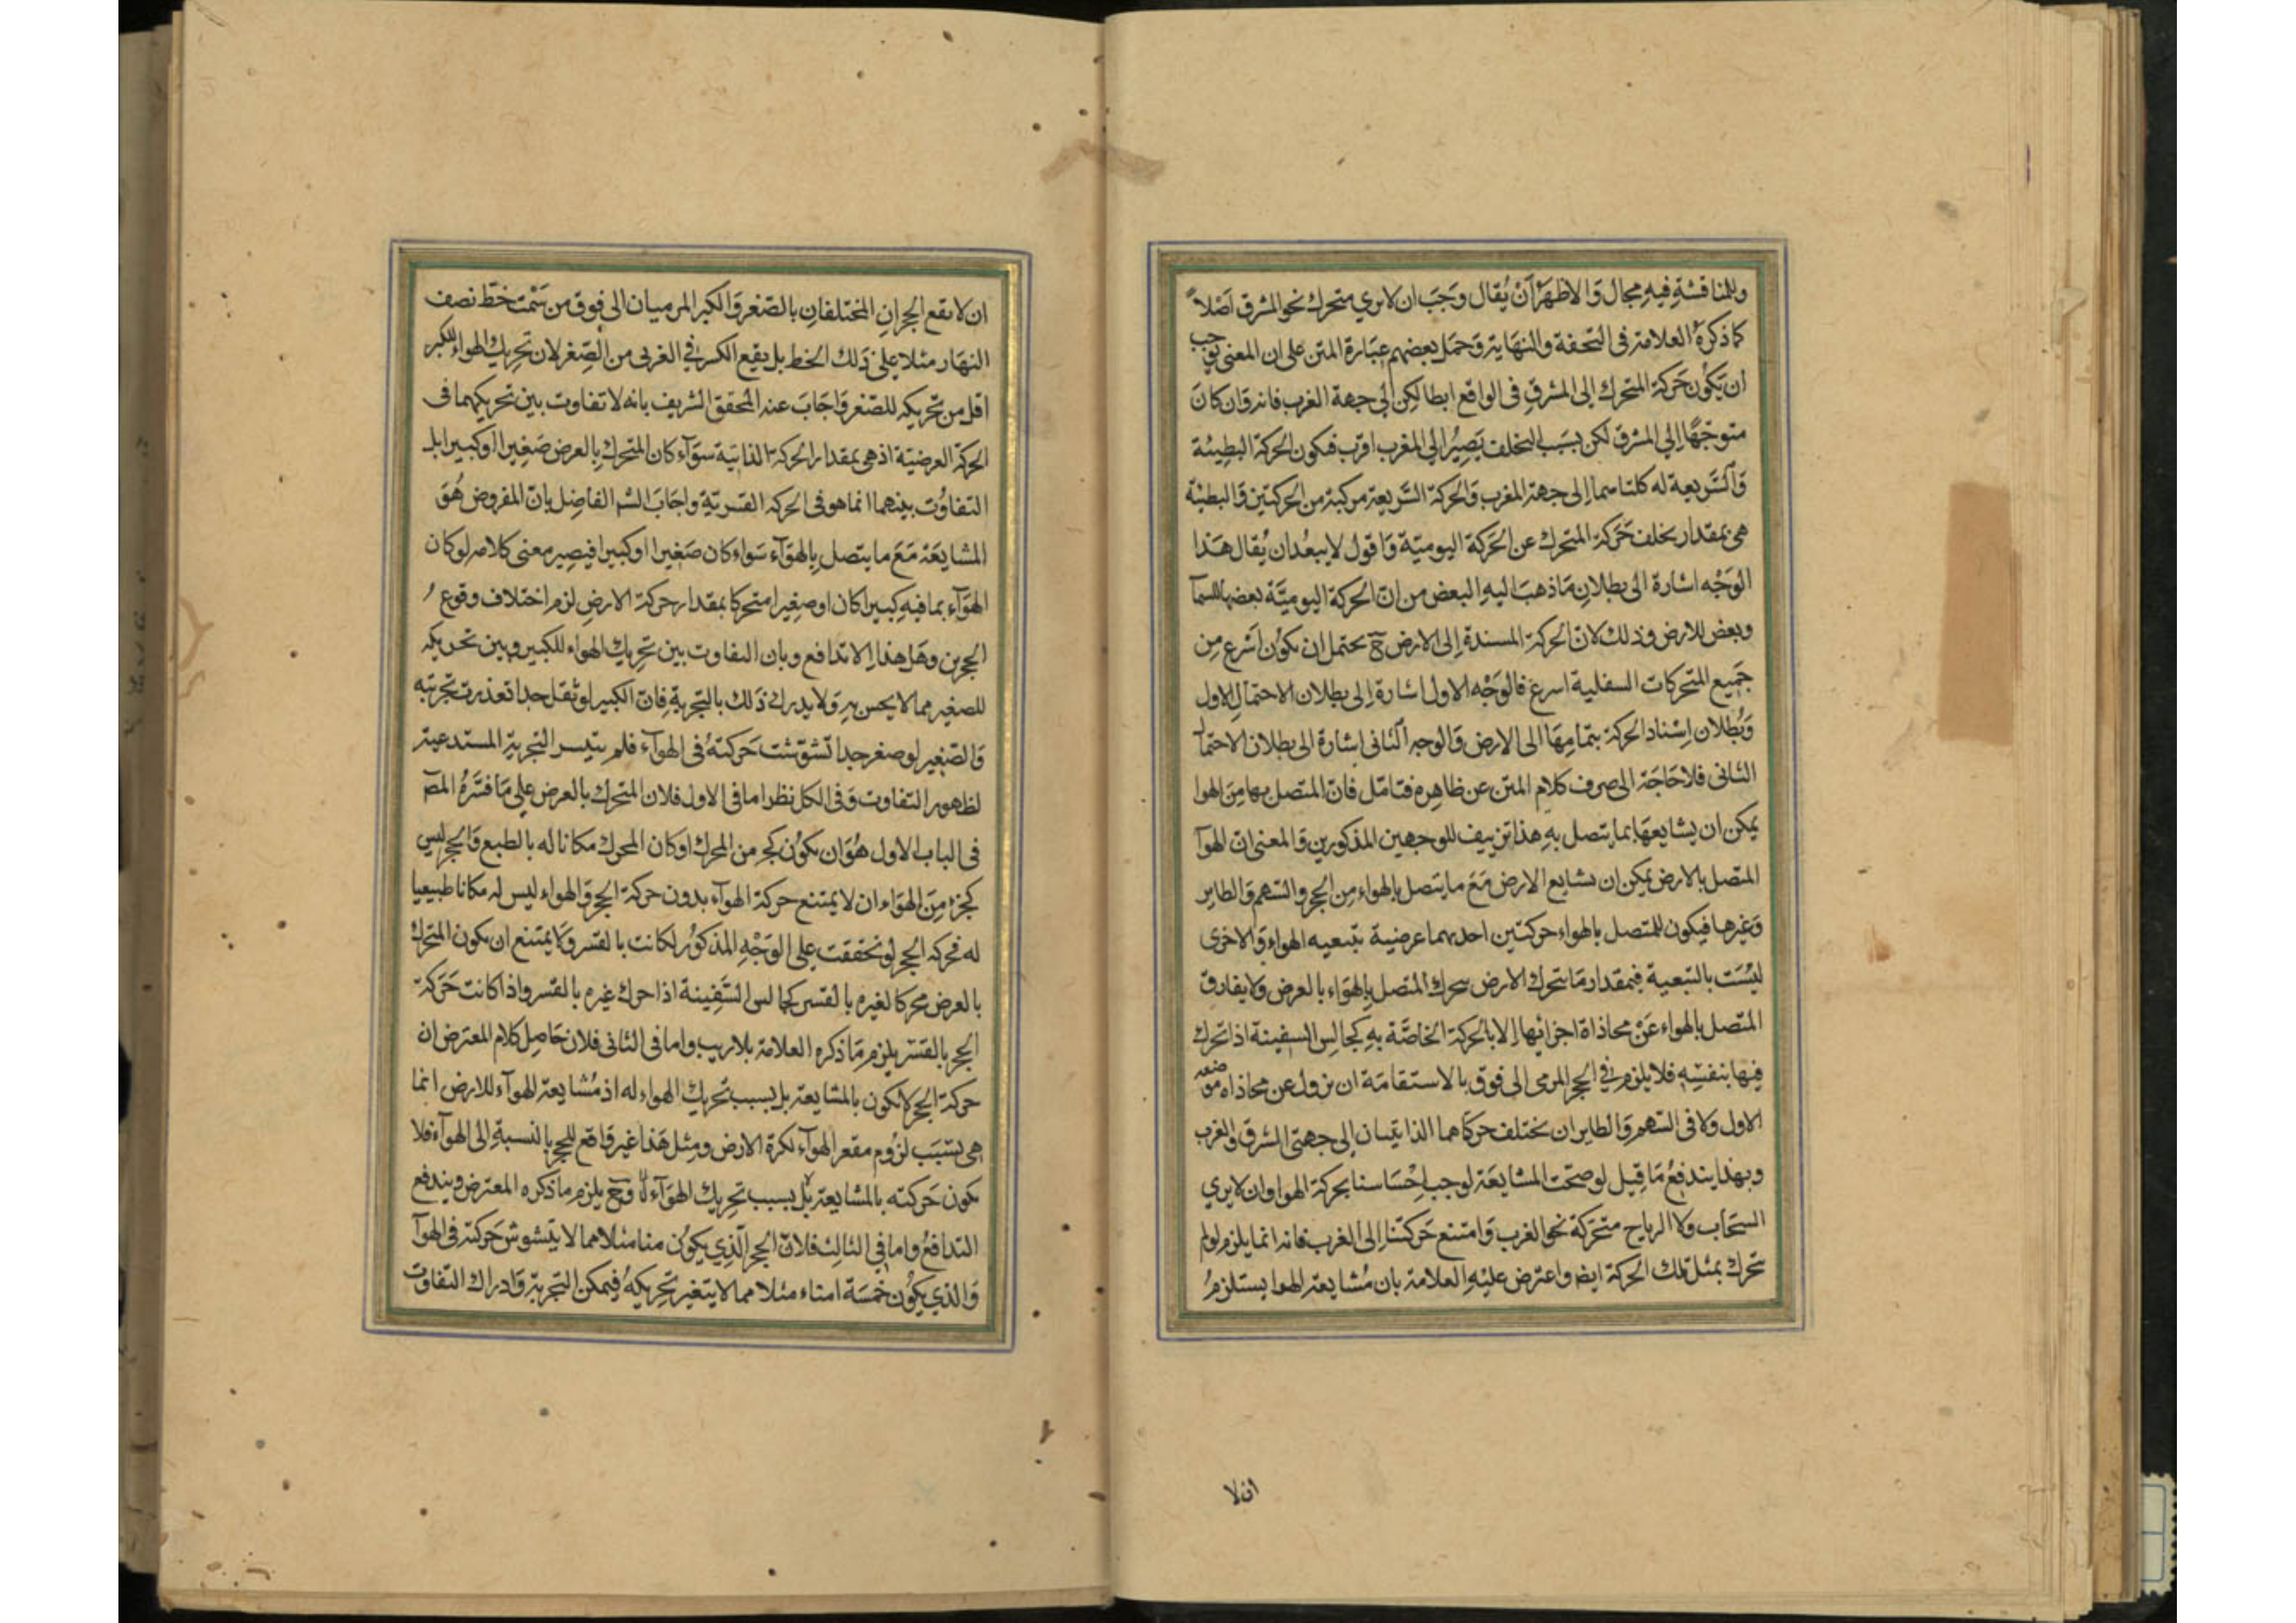 وللمناقشة فيه مجال وَالاظهرُ اَنْ يُقال وجَبَ ان لا يرى متحرك نحو المشرق اَصْلاً
كما ذكرهُ العلامة فى التحفة والنهاية وَحَمَل بعضهم عبَارة المتن على ان المعنى يوجب
أن يَكُون حَركة المتحرك إلى المشرقِ فى الواقع ابطا لكِن إلى جهة الغرب فانه وَان كانَ
متوجّهًا إلى المشرق لكن بسَبب التخلف يَصِيرُ إلى المغرب اقرب فتكون الحركة البطيئة
وَالسَّريعة له كلتاهما إلى جهة المغرب وَالحركة السَّريعة مركبة من الحركتين وَالبطيئة
هى بمقدار تخلف حَركة المتحرك عن الحَركة اليوميّة وَاقول لا يبعُد ان يُقال هَذا
الوَجْه اشارة الى بطلانِ مَا ذهبَ اليهِ البعض من انّ الحركة اليوميَّة بعضها للسمآ
وبعض للارض وذلك لانّ الحركة المسندة إلى الارض ح يحتمل ان تكُون اَسْرع مِن
جَميع المتحركات السفلية اسرع فالوَجْه الاول اشارة إلى بطلان الاحتمال الاول
وَبُطلان اِسْناد الحركة بتمامِهَا الى الارض وَالوجه الثانى اشارة الى بطلان الاحتمال
الثانى فلا حَاجَة الى صرف كلام المتن عن ظاهِره فتامّل فانّ المتصل بها مِنَ الهوا
يمكن ان يشايعهَا بما يتصل بهِ هذا تزييف للوجهين المذكورين وَالمعنى انّ الهوآ
المتصل بالارض يمكن ان يشايع الارض مَعَ ما يتصل بالهواء مِن الحجر والسّهم وَالطاير
وَغيرها فيكون للمتصل بالهواء حركتين احديهما عرضية بتبعيه الهواءِ وَالاخرى
ليْسَت بالتبعية فبمقدار مَا يتحرك الارض يتحرك المتصل بالهوَاء بالعرض ولا يفارق
المتصل بالهواء عَنْ محاذاة اجزائها إلا بالحركة الخاصَّة بهِ كجالِس السفينة اذا تحرك
فيها بنفسِه فلا يلزم فى الحجر المرمى الى فوق بالاستقامَة ان يزول عن محاذاه موضعه
الاول ولا فى السّهم وَالطايران تختلف حركتاهما الذاتيتان إلى جهتى الشرق والغرب
وبهذا يندفعُ مَا قِيل لو صحّت المشايعَة لوجب اِحْسَاسنا بحركة الهوا وان لا يرى
السّحاب ولا الرياح متحرّكة نحو الغرب وَامتنع حَركتنا إلى الغرب فانه انما يلزم لو لم
تتحرك بمثل تلك الحركة ايضا واعترض عليْهِ العلامة بان مُشايعة الهوا يستلزمُ
ان لا
ان لا يقع الحجرانِ المختلفانِ بالصّغر وَالكبر المرميان الى فوق من سَمْت خطّ نصف
النهَار مثلا على ذَلك الخط بل يقع الكبير فى الغربى من الصِّغر لان تحريك الهواءِ للكبر
اقل من تحريكه للصّغر وَاجَابَ عنه المحقق الشريف بانه لا تفاوت بين تحريكهما فى
الحركة العرضيّة اذ هى بمقدار الحركة الذاتيّة سوَآء كان المتحرك بِالعرض صَغيرا اَو كبيرا بل
التفاوُت بينهما انما هو فى الحركه القسريّةِ واجَابَ الشر الفاضِل بانّ المفروض هُوَ
المشايعَة مَعَ ما يتصل بِالهوَآء سَواء كان صَغيرا او كبيرا فيصِير معنى كلامه لو كان
الهوَآء بما فيهِ كبيرا كان او صغيرا متحركا بمقدار حركة الارضِ لزم اختلاف وقوعُ
الحجرين وهَل هذا الا تدافع وبان التفاوت بين تحريك الهواءِ للكبير وبين تحريكه
للصغير مما لا يحس بهِ وَلا يدرك ذَلك بالتجربةِ فانّ الكبير لو ثقل جدا تعذرت تجربته
وَالصّغير لو صغر جدا تشوّشت حَركتهُ فى الهوآء فلم يتيسر التجربة المستدعية
لظهور التفاوت وَفى الكل نظر اما فى الاول فلان المتحرك بالعرض على مَا فسّرهُ المص
فى الباب الاول هُوَ ان يكُون كجزء من المحرك او كان المحرك مكانا له بالطبع وَالحجر ليس
كجزء مِنَ الهوَاء ان لا يمتنع حركة الهوآء بدون حركة الحجر وَالهواء ليس له مكانا طبيعيا
له فحركه الحجر لو تحققت على الوَجْهِ المذكُور لكانت بالقسر وَلا يمتنع ان يكون المتحرك
بالعرض محركا لغيره بالقسر كجالس السَّفينة اذا حرك غيره بالقسر واذا كانت حَرَكة
الحجر بالقسر يلزم مَا ذكره العلامة بلا ريب واما فى الثانى فلان حَاصِل كلام المعترض ان
حركة الحجر لا تكون بالمشايعة بل بسبب تحريك الهواء له اذ مُشايعة الهوآء للارض انما
هى بسَبَب لزُوم مقعر الهوآء لكرة الارض ومِثل هَذا غير وَاقع للحجر بالنسبةِ إلى الهوآء فلا
تكون حَركته بالمشايعة بَل بسبب تحريك الهوَآء لهُ وَح يلزم ما ذكره المعترض ويندفع
التدافعُ واما فى الثالث فلانّ الحجر الّذِى يكُون منا مثلا مما لا يتشوش حَركته فى الهوآ
وَالذى يكُون خمسَة امناء مثلا مما لا يتغير تحريكهُ فيمكن التجربة وَادراك التفاوت